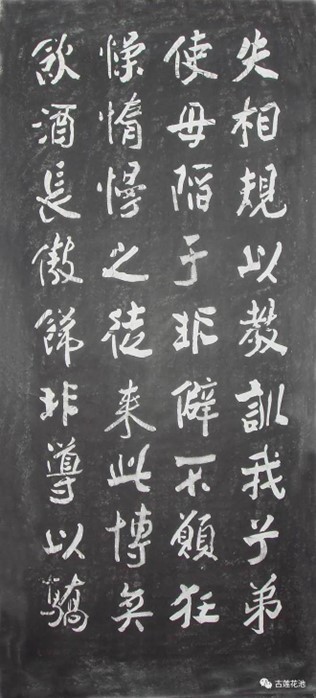 失相規以教訓我子弟
使毋陷于非僻不願狂
懆惰慢之徒来此博奕
飲酒長傲飾非導以驕
古莲花池